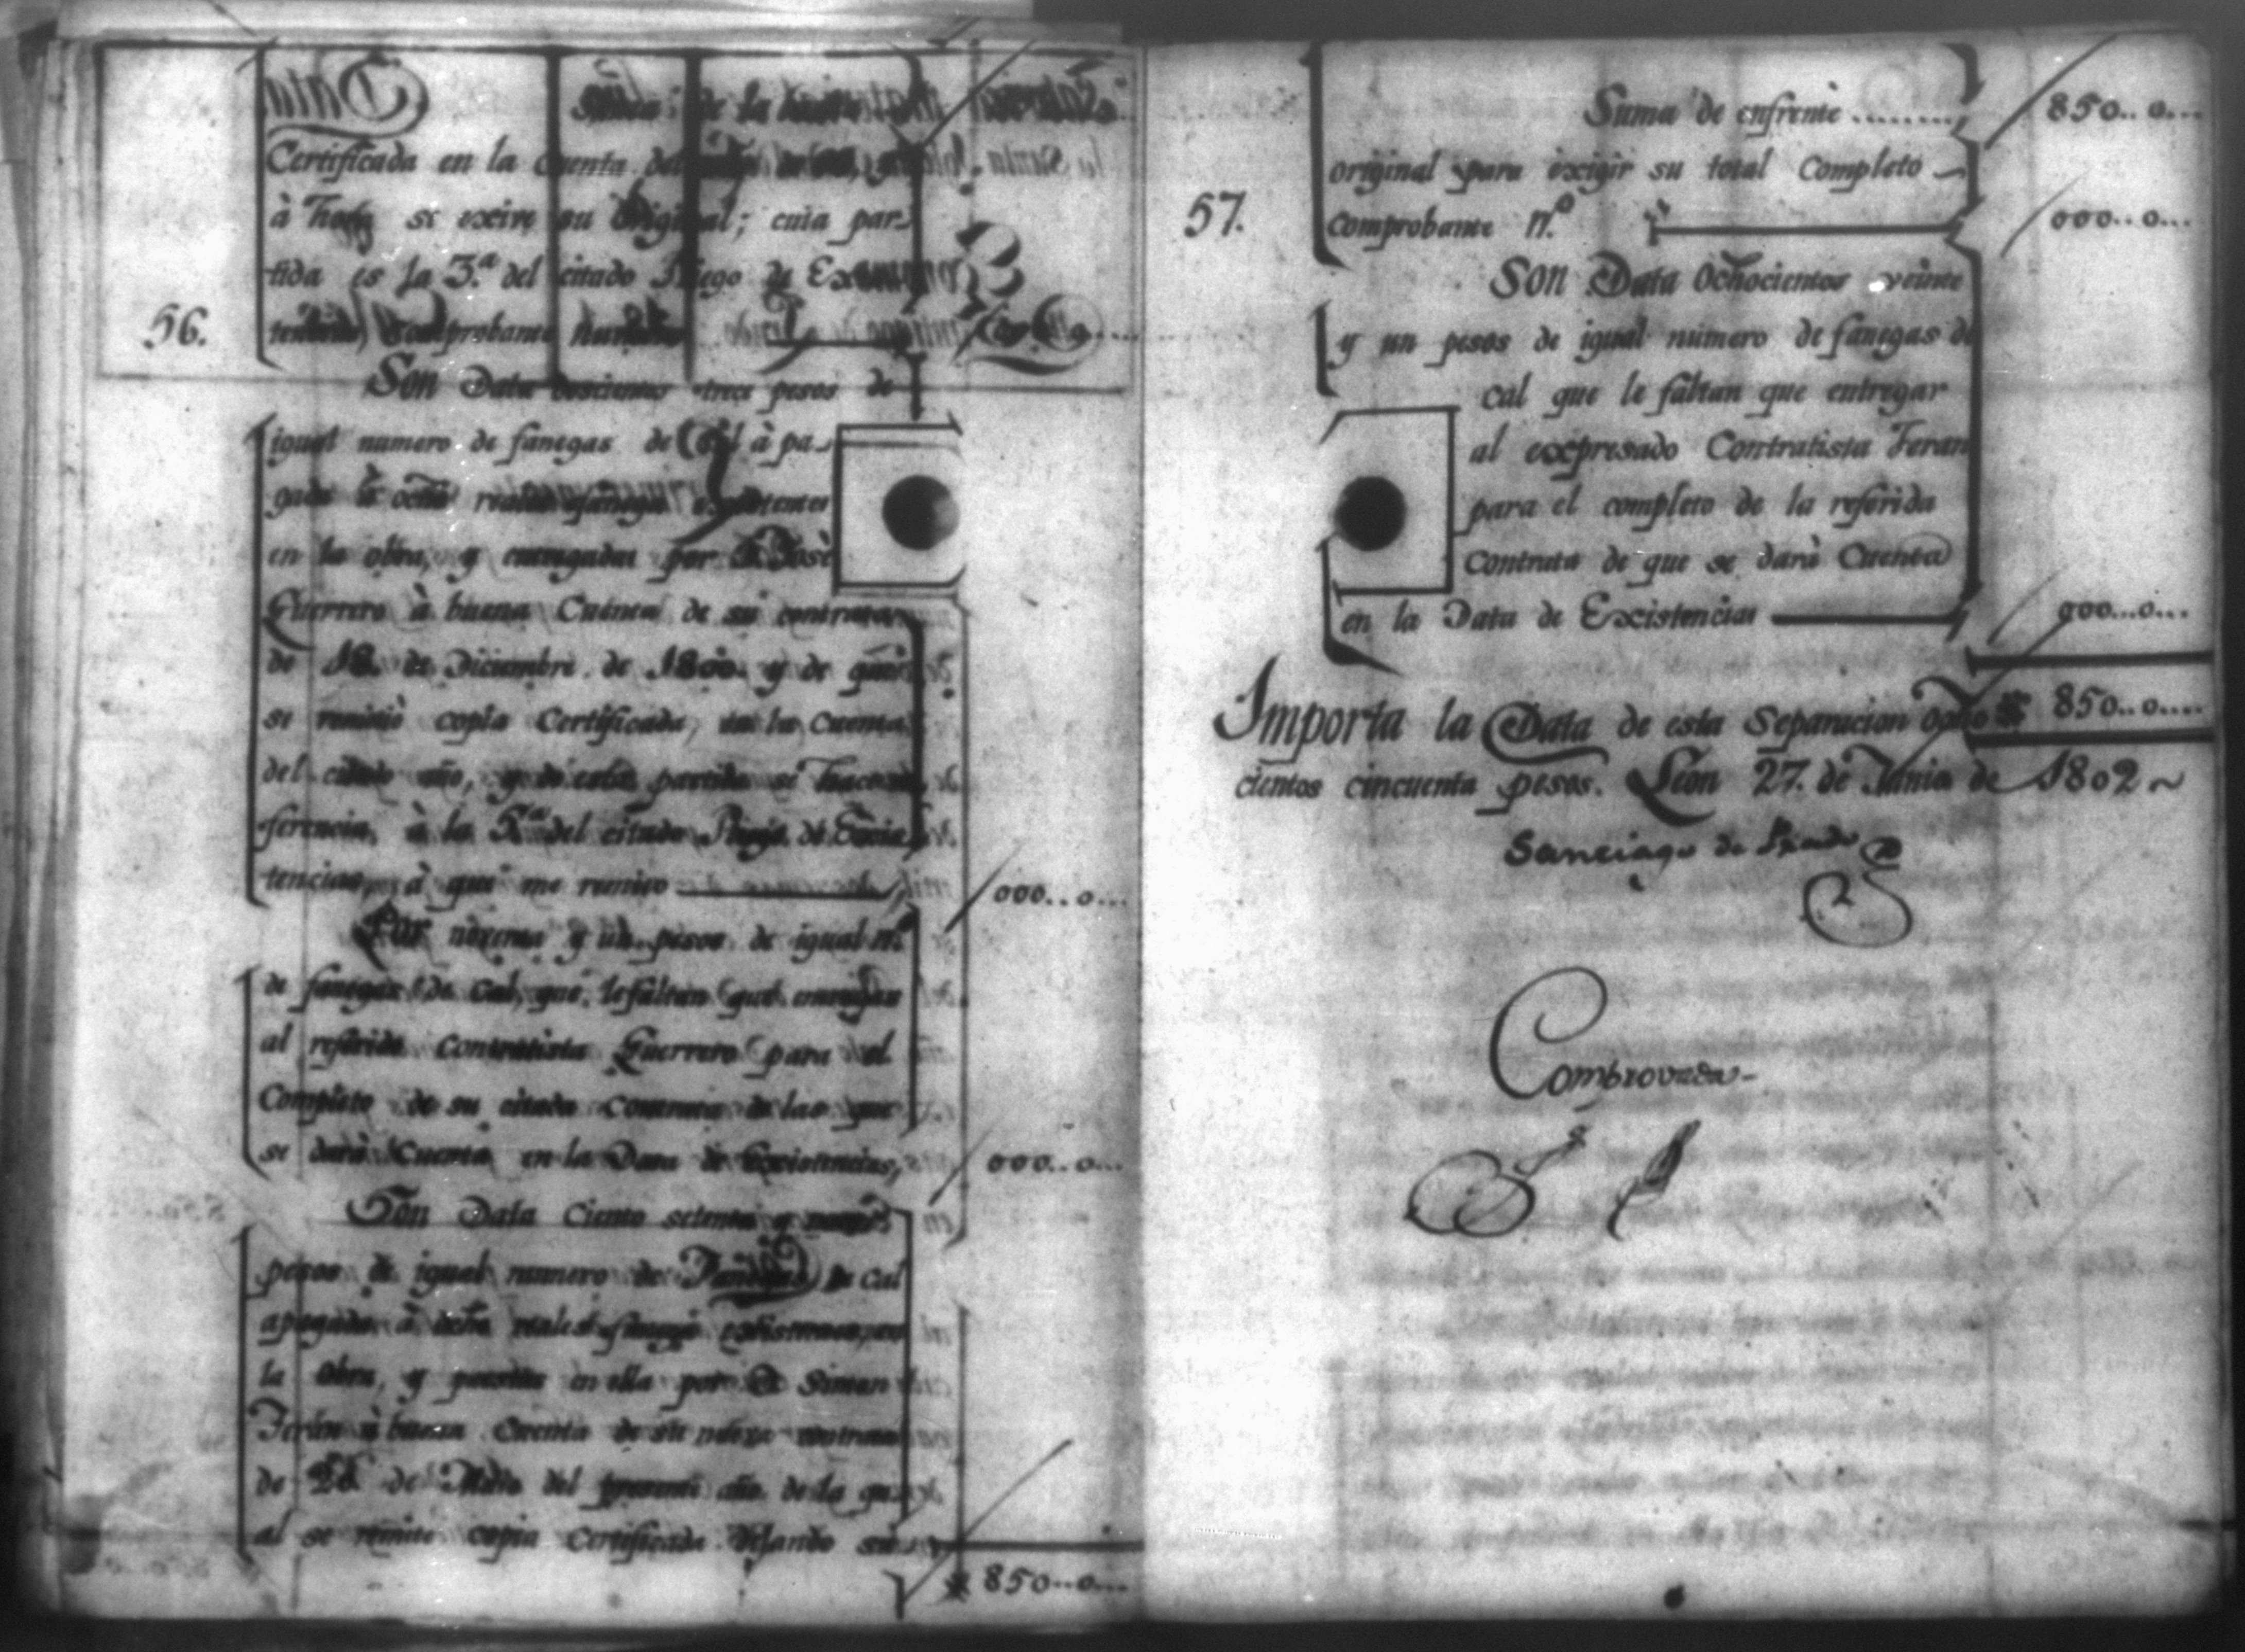 Data
Certificada en la cuenta del
à se exive su original; cuia par-
tida es la 3.ª del citado Pliego de Exis-
56. tencias, Comprobante numero
Son Data doscientos trece pesos de
igual numero de fanegas de Cal à pa-
gada à ocho reales fanega existentes
en la obra, y entregadas por D. José
Guerrero à buena Cuenta de su contrata
de 18 de Diciembre de 1800 y de que
se remitiò copia Certificada, en la Cuenta
del citado año, y de esta partida se hace re-
ferencia à la 5.ª del citado Pliego de Exis-
tencias, à que me remito 000..0...
Por noventa y un pesos de igual n.º
de fanegas de Cal, que le faltan que entregar
al referido Contratista Guerrero para el
Completo de su citada Contrata de las que
se darà Cuenta en la Data de Existencias, 000..0...
Son Data Ciento setenta y nueve
pesos de igual numero de Fanegas de Cal
apagada à ocho reales fanega existentes, en
la Obra, y puestas en ella por D. Simon
Terán à buena Cuenta de su nueva contrata
de 26 de del presente año de la qu-
al se remite copia Certificada dejando su
850..0...
Suma de enfrente ........ 850..0...
original para exigir su total Completo
57. comprobante n.º 000..0...
Son Data Ochocientos veinte
y un pesos de igual numero de fanegas de
cal que le faltan que entregar
al expresado Contratista Teran
para el completo de la referida
Contrata de que se darà Cuenta
en la Data de Existencias 000...0...
Importa la Data de esta Separacion ocho 850..0....
cientos cincuenta pesos. Leon 27. de Junio de 1802
Santiago de
Combrovada